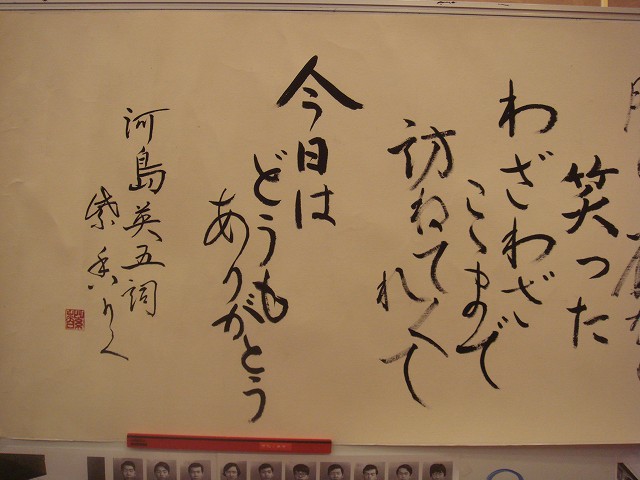 笑った
わざわざ
こゝまで
訪ねてくれて
今日は
どうも
ありがとう
河島英五詞
紫香